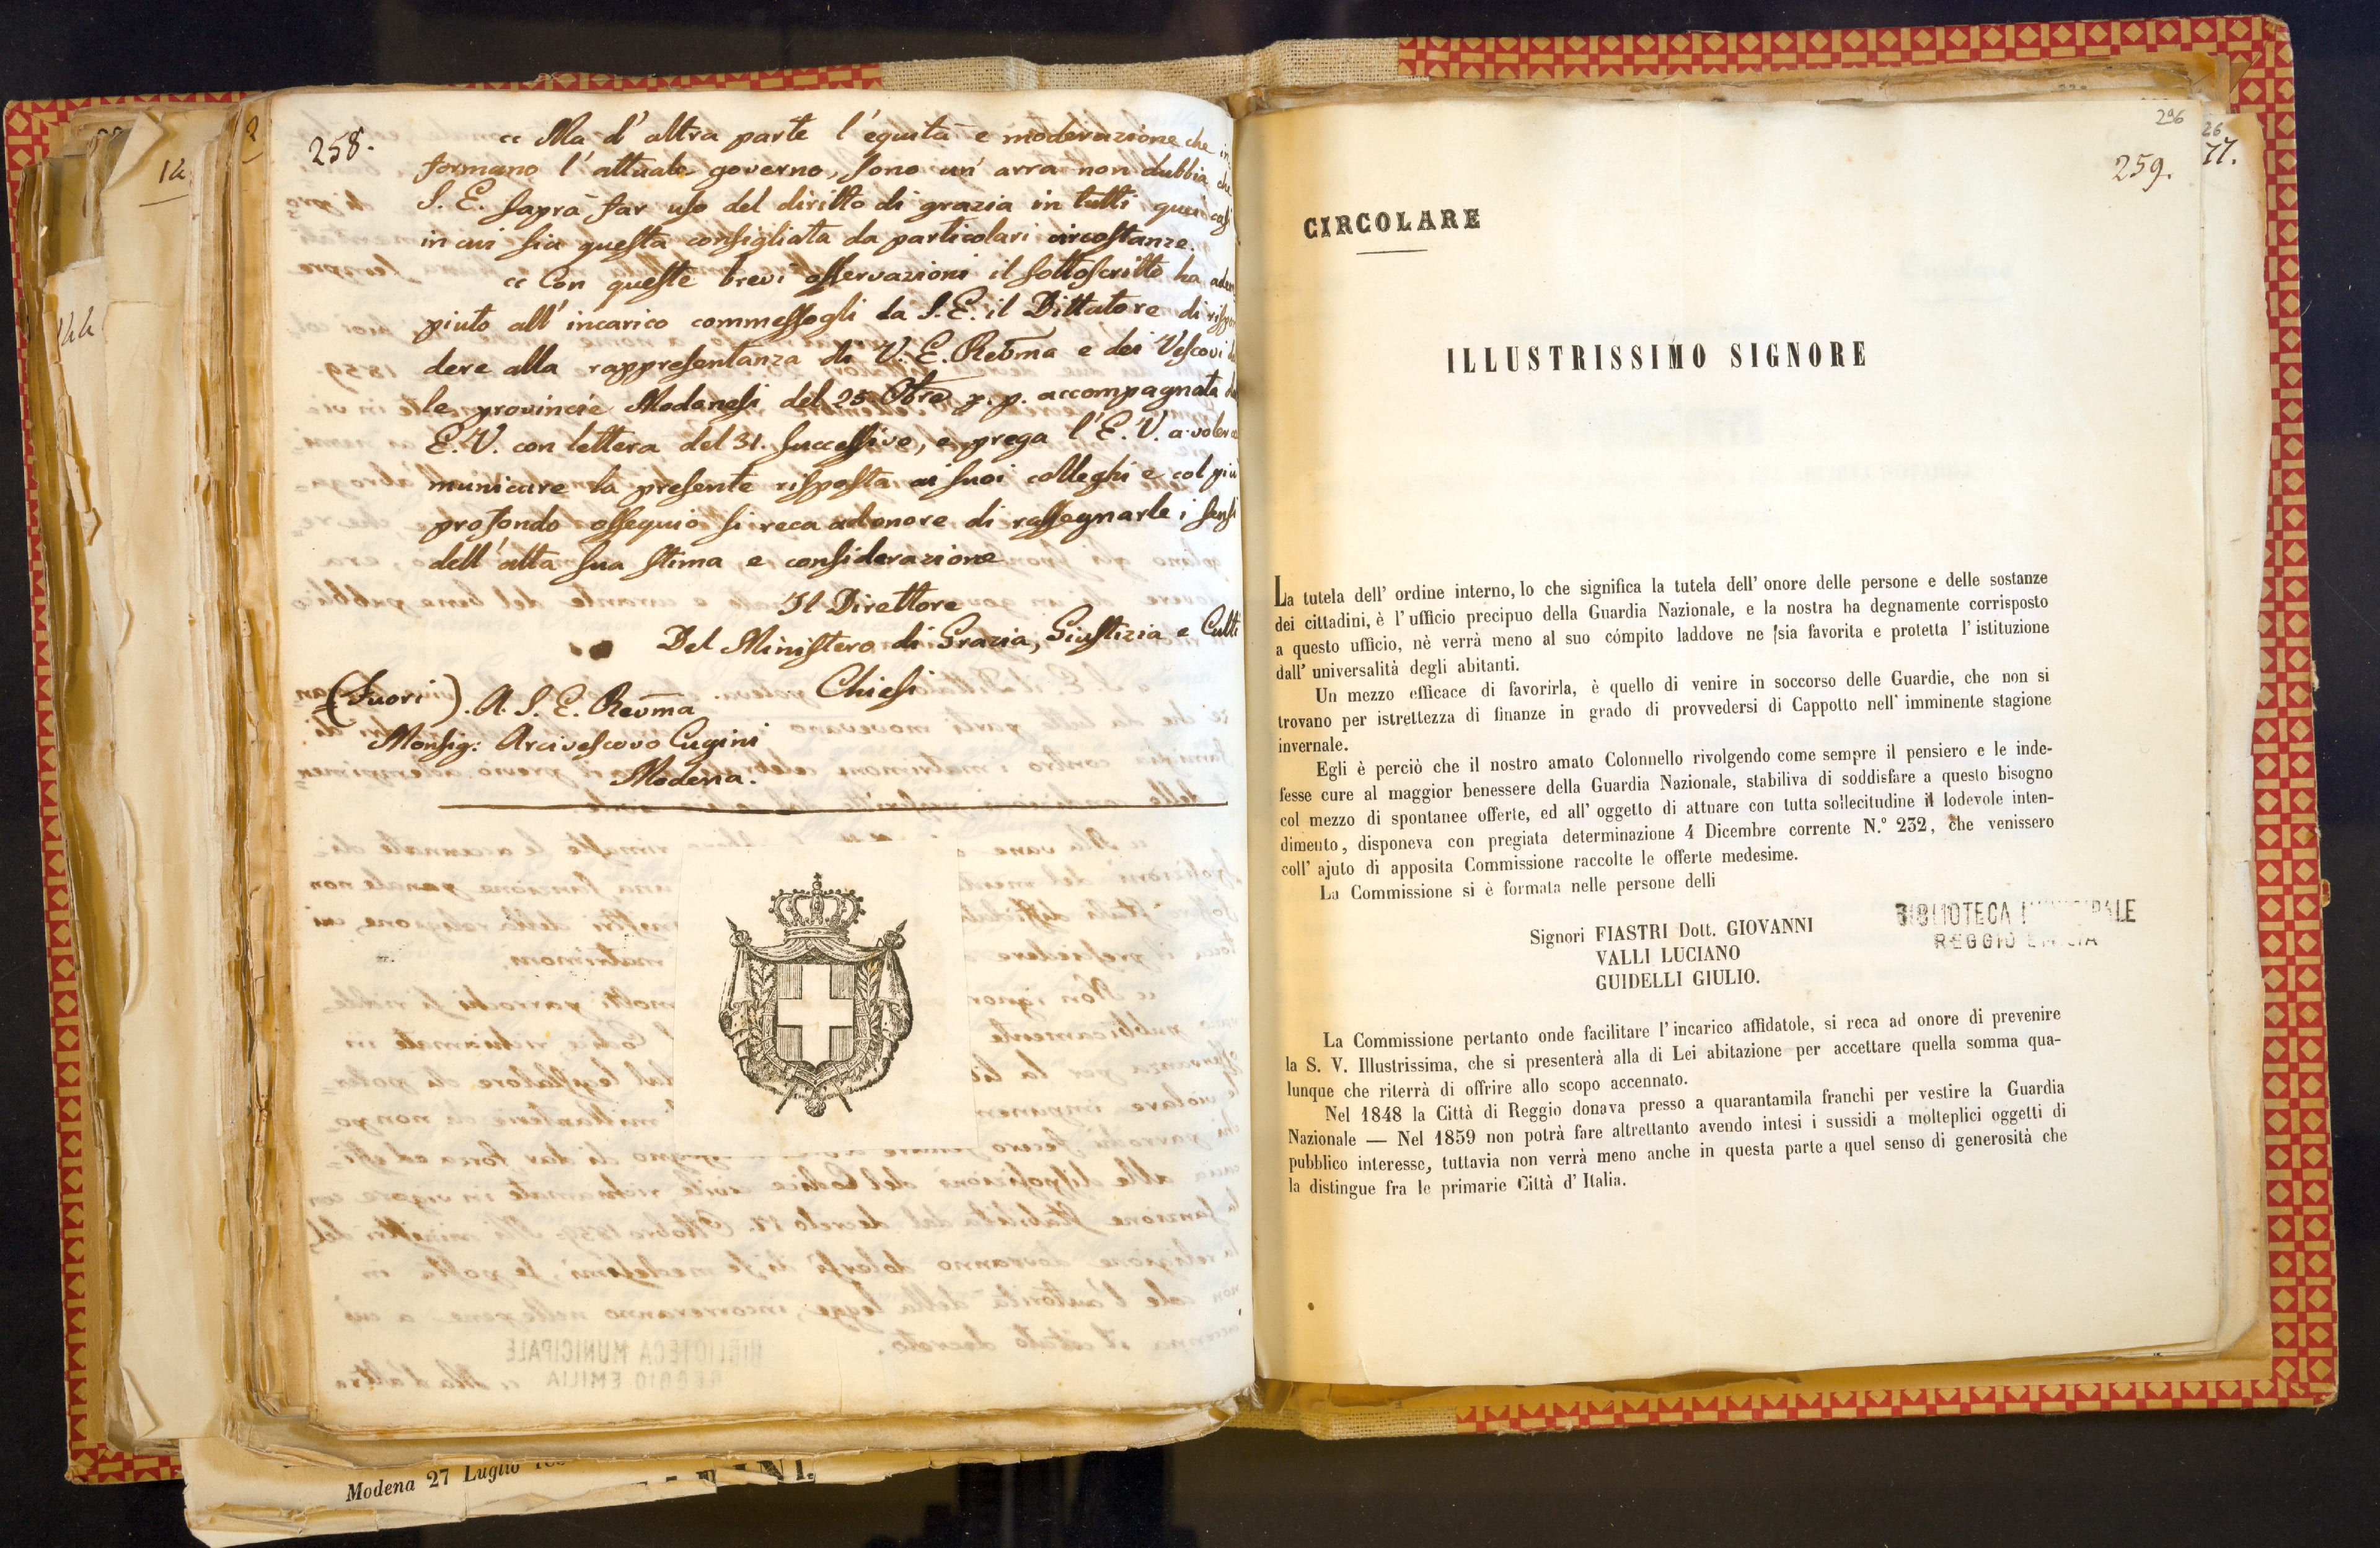 258.
" Ma d' altra parte l' equità e moderazione che in
formano l' attuale governo, sono un' arra non dubbia che
S. E. saprà far uso del diritto di grazia in tutti quei casi
in cui sia questa consigliata da particolari circostanze.
" Con queste brevi osservazioni il sottoscritto ha adem
piuto all' incarico commessogli da S. E. il Dittatore di rispon
dere alla rappresentanza di V. E. Revma e dei Vescovi
le provincie Modanesi del 25 8bre p. p. accompagnata
E. V. con lettera del 31. successivo, e prega l' E. V. a voler
municare la presente risposta ai suoi colleghi e col più
profondo ossequio si reca ad onore di rassegnarle i sensi
dell' alta sua stima e considerazione
Il Direttore
Del Ministero di Grazia, Giustizia e Culti
Chiesi
(Fuori). A. S. E. Revma
Monsig: Arcivescovo Cugini
Modena.
Modena 27 Luglio
296
259.
26
77.
CIRCOLARE
ILLUSTRISSIMO SIGNORE
La tutela dell' ordine interno, lo che significa la tutela dell' onore delle persone e delle sostanze
dei cittadini, è l' ufficio precipuo della Guardia Nazionale, e la nostra ha degnamente corrisposto
a questo ufficio, nè verrà meno al suo cómpito laddove ne sia favorita e protetta l' istituzione
dall' universalità degli abitanti.
Un mezzo efficace di favorirla, è quello di venire in soccorso delle Guardie, che non si
trovano per istrettezza di finanze in grado di provvedersi di Cappotto nell' imminente stagione
invernale.
Egli è perciò che il nostro amato Colonnello rivolgendo come sempre il pensiero e le inde-
fesse cure al maggior benessere della Guardia Nazionale, stabiliva di soddisfare a questo bisogno
col mezzo di spontanee offerte, ed all' oggetto di attuare con tutta sollecitudine il lodevole inten-
dimento, disponeva con pregiata determinazione 4 Dicembre corrente N.° 232, che venissero
coll' ajuto di apposita Commissione raccolte le offerte medesime.
La Commissione si è formata nelle persone delli
Signori FIASTRI Dott. GIOVANNI
VALLI LUCIANO
GUIDELLI GIULIO.
BIBLIOTECA MUNICIPALE
REGGIO EMILIA
La Commissione pertanto onde facilitare l' incarico affidatole, si reca ad onore di prevenire
la S. V. Illustrissima, che si presenterà alla di Lei abitazione per accettare quella somma qua-
lunque che riterrà di offrire allo scopo accennato.
Nel 1848 la Città di Reggio donava presso a quarantamila franchi per vestire la Guardia
Nazionale — Nel 1859 non potrà fare altrettanto avendo intesi i sussidi a molteplici oggetti di
pubblico interesse, tuttavia non verrà meno anche in questa parte a quel senso di generosità che
la distingue fra le primarie Città d' Italia.